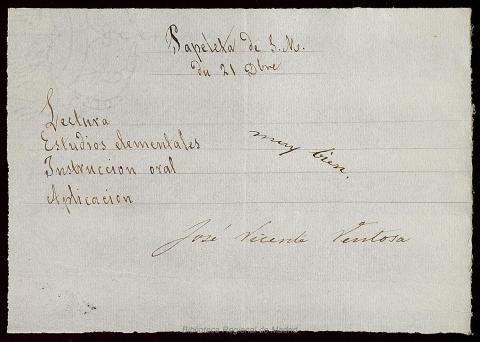 Papeleta de S. M.
du 21 Dbre
Lectura
Estudios elementales
muy bien.
Instruccion oral
Aplicacion
José Vicente Ventosa
Biblioteca Regional de Madrid